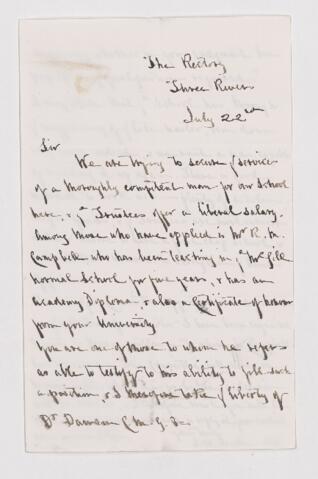 The Rectory
Three Rivers
July 22nd
Sir
We are trying to secure ye services
of a thoroughly competent man for our School
here, & ye Trustees offer a liberal salary.
Among those who have applied is Mr R. M.
Campbell who has been teaching in ye McGill
Normal School for five years, & has an
Academy Diploma, & also a Certificate of honour
from your University
You are one of those to whom he refers
as able to testify to his ability to fill such
a position, & I therefore take ye liberty of
Dr Dawson C.M.G. &c